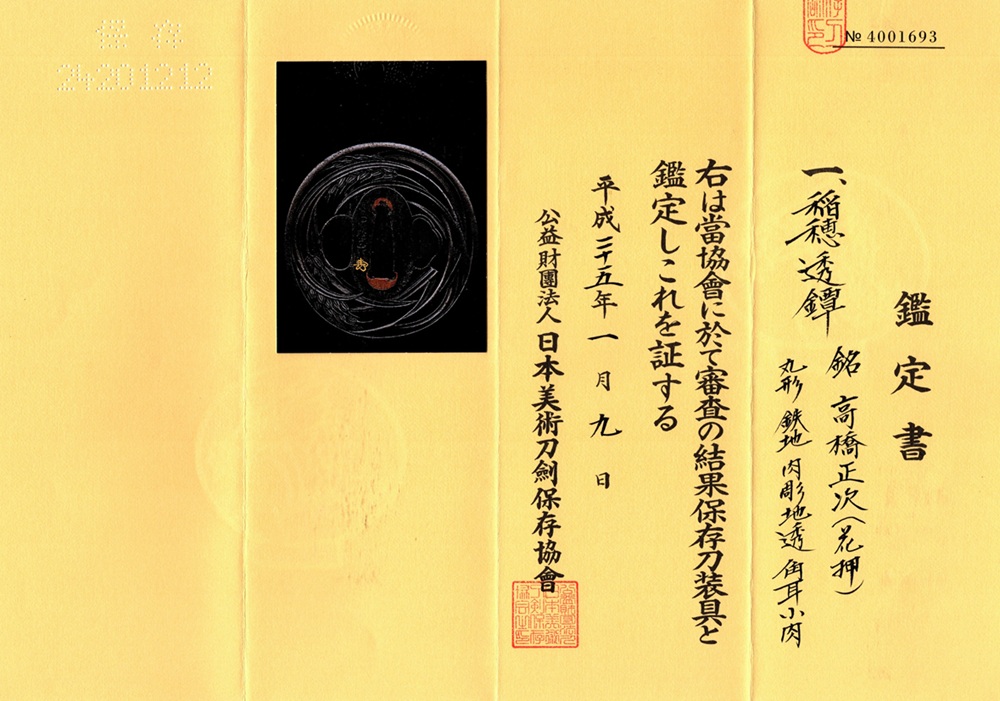 № 4001693
鑑定書
一、稲穂透鐔
銘 高橋正次(花押)
丸形 鉄地 肉彫地透 角耳小肉
右は當協會に於て審査の結果保存刀装具と
鑑定しこれを証する
平成二十五年一月九日
公益財團法人 日本美術刀劍保存協會
保存
24201212